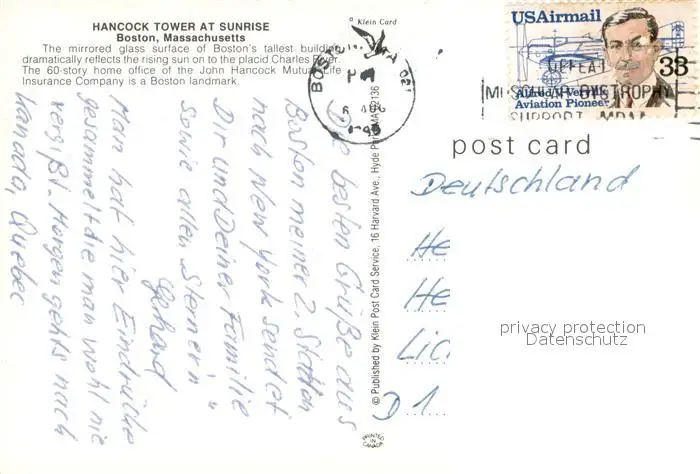 HANCOCK TOWER AT SUNRISE
Boston, Massachusetts
The mirrored glass surface of Boston's tallest building
dramatically reflects the rising sun on to the placid Charles River.
The 60-story home office of the John Hancock Mutual Life
Insurance Company is a Boston landmark.
a Klein Card
BOSTON MA 021
PM
6 AUG
USAirmail
33
Alfred V. Verville
Aviation Pioneer
DEFEAT
MUSCULAR DYSTROPHY
SUPPORT MDA
post card
© Published by Klein Post Card Service, 16 Harvard Ave., Hyde Park, MA 02136
PRINTED IN CANADA
Die besten Grüße aus
Boston meiner 2. Station
nach New York sendet
Dir und Deiner Familie
sowie allen "Sternern"
Gerhard
Man hat hier Eindrücke
gesammelt die man wohl nie
vergißt. Morgen gehts nach
Kanada, Quebec
Deutschland
He
He
Lic
D 1
privacy protection
Datenschutz